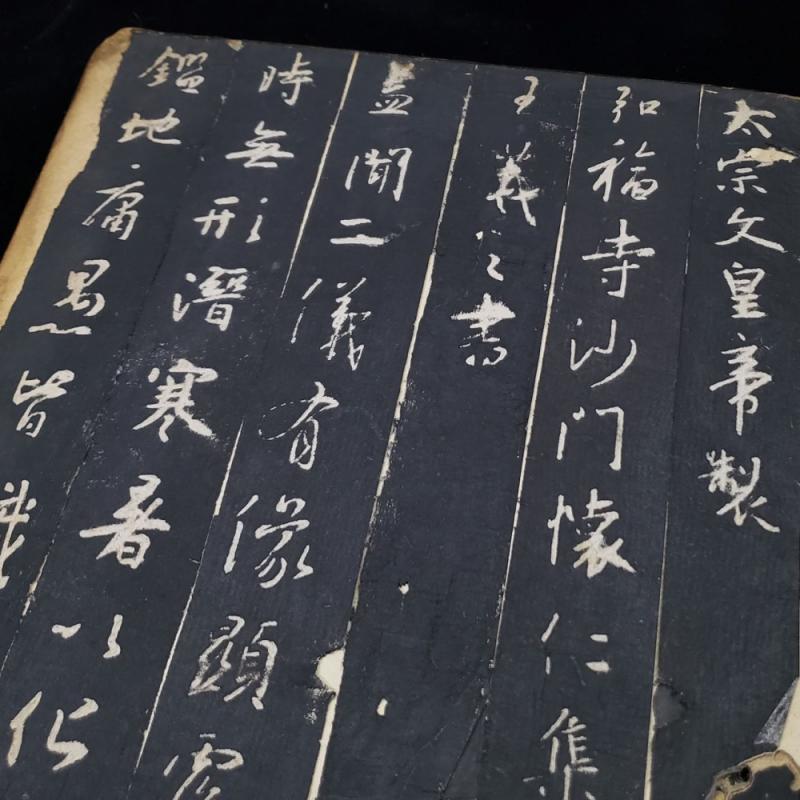 太宗文皇帝製
弘福寺沙門懷仁集
王羲之書
蓋聞二儀有像顯
時無形潛寒暑以化
鑑地庸愚皆識